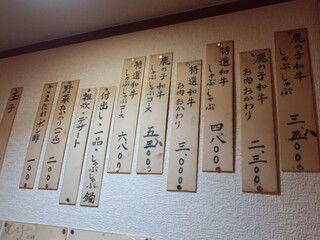 鹿の子和牛
しゃぶしゃぶ
三、五〇〇
鹿の子和牛
お肉おかわり
二、三〇〇
特選和牛
しゃぶしゃぶ
四、八〇〇
特選和牛
お肉おかわり
三、〇〇〇
鹿の子和牛
しゃぶしゃぶコース
五、五〇〇
特選和牛
しゃぶしゃぶコース
六、八〇〇
付出し・一品・しゃぶしゃぶ鍋
雑炊・デザート
野菜おかわり(一皿)
二〇〇
ごまだれ・ポン酢
一〇〇
玉子